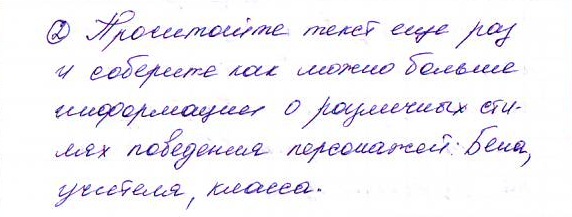 ② Прочитайте текст еще раз
и соберите как можно больше
информации о различных сти-
лях поведения персонажей: Бена,
учителя, класса.